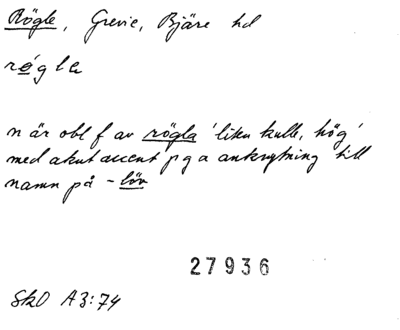 Rögle, Grevie, Bjäre hd
rögla
n är obl f av rögla 'liten kulle, hög'
med akut accent p g a anknytning till
namn på -löv
27936
SkO A3:74